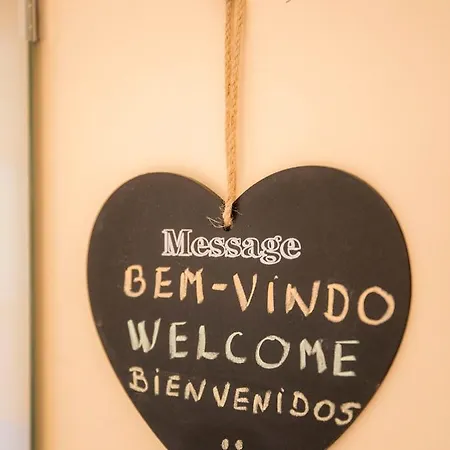 Message
BEM-VINDO
WELCOME
BIENVENIDOS